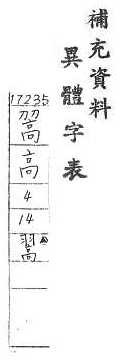 補充資料
異體字表
17235
高
4
14
翯